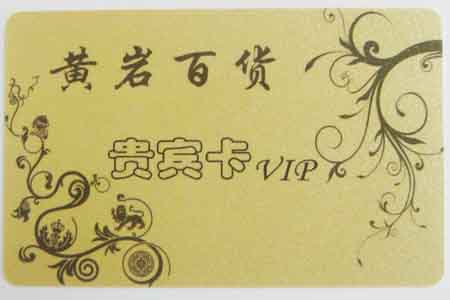 黄岩百货
贵宾卡VIP